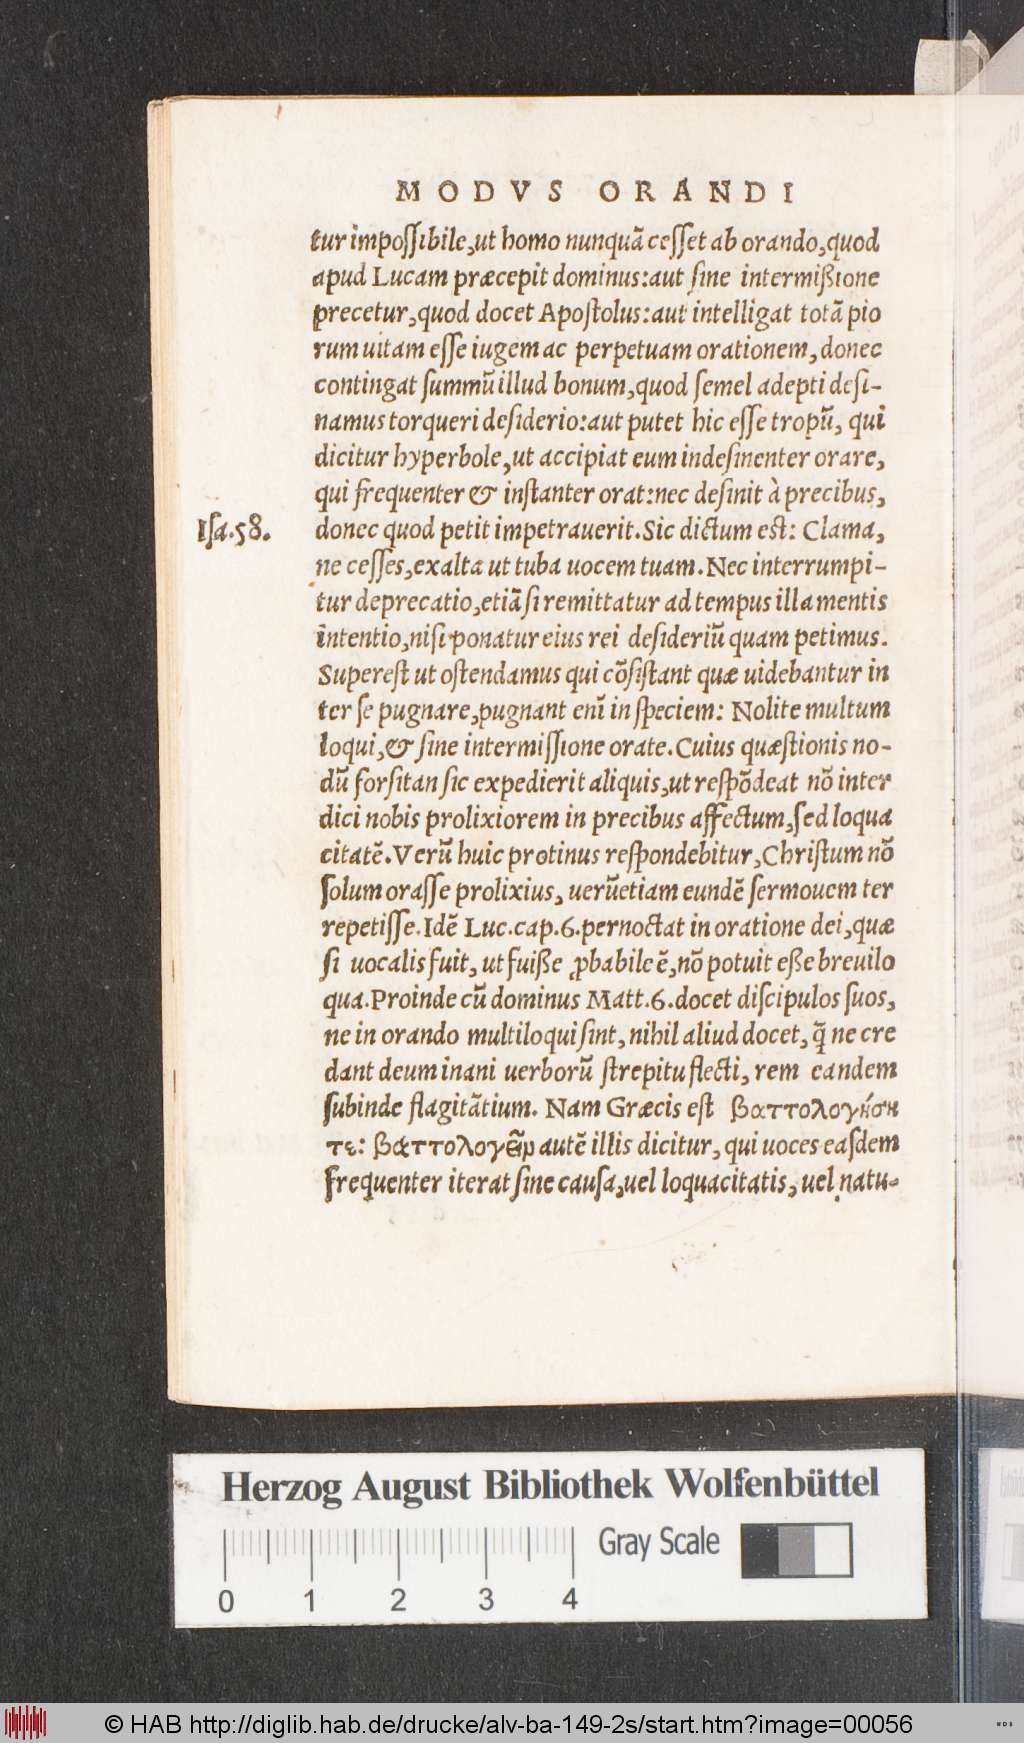 MODVS ORANDI
tur impossibile, ut homo nunquã cesset ab orando, quod
apud Lucam præcepit dominus: aut sine intermißione
precetur, quod docet Apostolus: aut intelligat totã pio
rum uitam esse iugem ac perpetuam orationem, donec
contingat summũ illud bonum, quod semel adepti desi-
namus torqueri desiderio: aut putet hic esse tropũ, qui
dicitur hyperbole, ut accipiat eum indesinenter orare,
qui frequenter & instanter orat: nec desinit à precibus,
Isa. 58.
donec quod petit impetrauerit. Sic dictum est: Clama,
ne cesses, exalta ut tuba uocem tuam. Nec interrumpi-
tur deprecatio, etiã si remittatur ad tempus illa mentis
intentio, nisi ponatur eius rei desideriũ quam petimus.
Superest ut ostendamus qui cõsistant quæ uidebantur in
ter se pugnare, pugnant enĩ in speciem: Nolite multum
loqui, & sine intermissione orate. Cuius quæstionis no-
dũ forsitan sic expedierit aliquis, ut respõdeat nõ inter
dici nobis prolixiorem in precibus affectum, sed loqua
citatẽ. Verũ huic protinus respondebitur, Christum nõ
solum orasse prolixius, uerũetiam eundẽ sermouem ter
repetisse. Idẽ Luc. cap. 6. pernoctat in oratione dei, quæ
si uocalis fuit, ut fuiße ꝓbabile ẽ, nõ potuit eße breuilo
qua. Proinde cũ dominus Matt. 6. docet discipulos suos,
ne in orando multiloqui sint, nihil aliud docet, q̃ ne cre
dant deum inani uerborũ strepitu flecti, rem eandem
subinde flagitãtium. Nam Græcis est βαττολογήση
τε: βαττολογεῖν autẽ illis dicitur, qui uoces easdem
frequenter iterat sine causa, uel loquacitatis, uel natu-
Herzog August Bibliothek Wolfenbüttel
Gray Scale
0 1 2 3 4
© HAB http://diglib.hab.de/drucke/alv-ba-149-2s/start.htm?image=00056